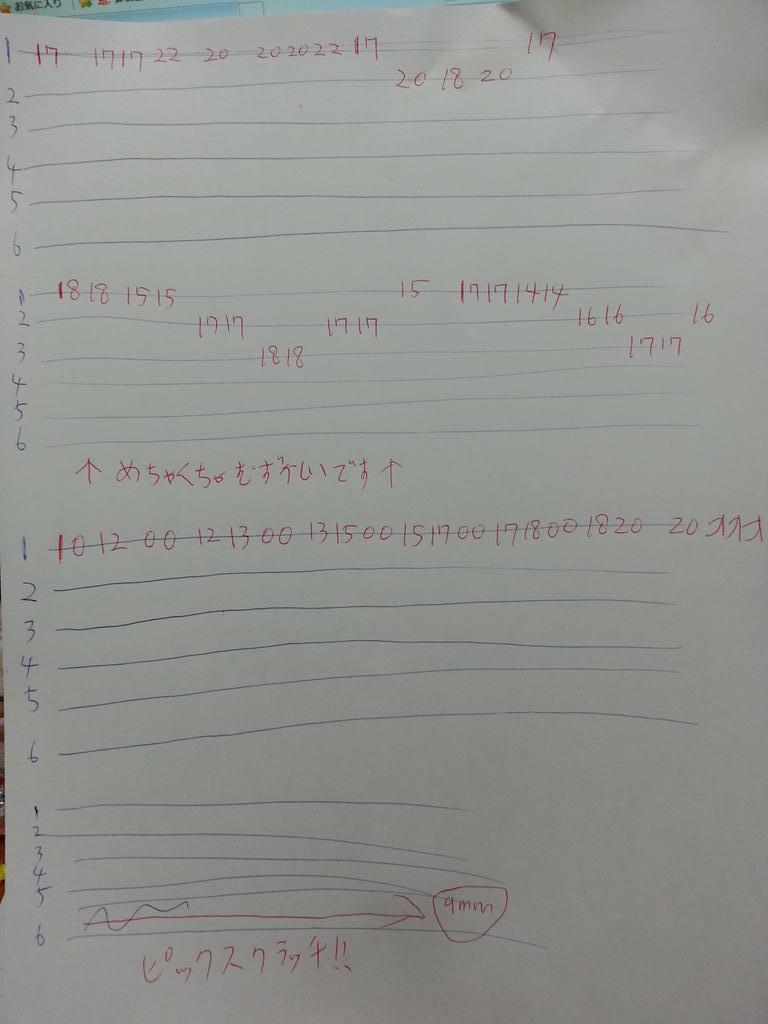 お気に入り
1 17 17 17 22 20 20 20 22 17 17
2 20 18 20
3
4
5
6
1 18 18 15 15 15 17 17 14 14
2 17 17 17 17 16 16 16
3 18 18 17 17
4
5
6
↑ めちゃくちゃむずかしいです ↑
1 10 12 0 0 12 13 0 0 13 15 0 0 15 17 0 0 17 18 0 0 18 20 20
2
3
4
5
6
1
2
3
4
5
6
9mm
ピックスクラッチ!!